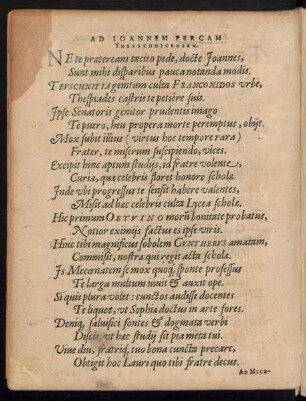 AD IOANNEM PERCAM
THEVSCHNICENSEM.
NE te præteream tacito pede, docte Joannes,
Sunt mihi disparibus pauca notanda modis.
TEVSCHNITIA genitum culta FRANCONIDOS vrbe,
Thespiades castris te petiere suis.
Ipse Senatoris genitor prudentis imago
Te puero, heu propera morte peremptus, obijt.
Mox subit illius (virtus hoc tempore rara)
Frater, te miserum suscipiendo, vices.
Excipit hinc aptum studijs, id fratre volente,
Curia, quæ celebris floret honore scholæ.
Inde vbi progressus te sensit habere valentes,
Misit ad hec celebris culta Lycea scholæ.
Hic primum OETVINO morũ bonitate probatus,
Notior eximijs factus es ipse viris.
Hinc tibi magnificus sobolem GVNTHERVS amatam,
Commisit, nostra qui regit acta scholæ.
Js Mecœnatem se mox quoq; sponte professus
Te larga multum iuuit & auxit ope.
Si quis plura volet: cunctos audisse docentes
Te liquet, vt Sophia doctus in arte fores.
Deniq; salvifici fontes & dogmata verbi
Discis, vt hæc studij sit pia meta tui.
Viue diu, fratriq; tuo bona cuncta precare,
Obtigit hoc Lauri quo tibi fratre decus.
AD MICH-